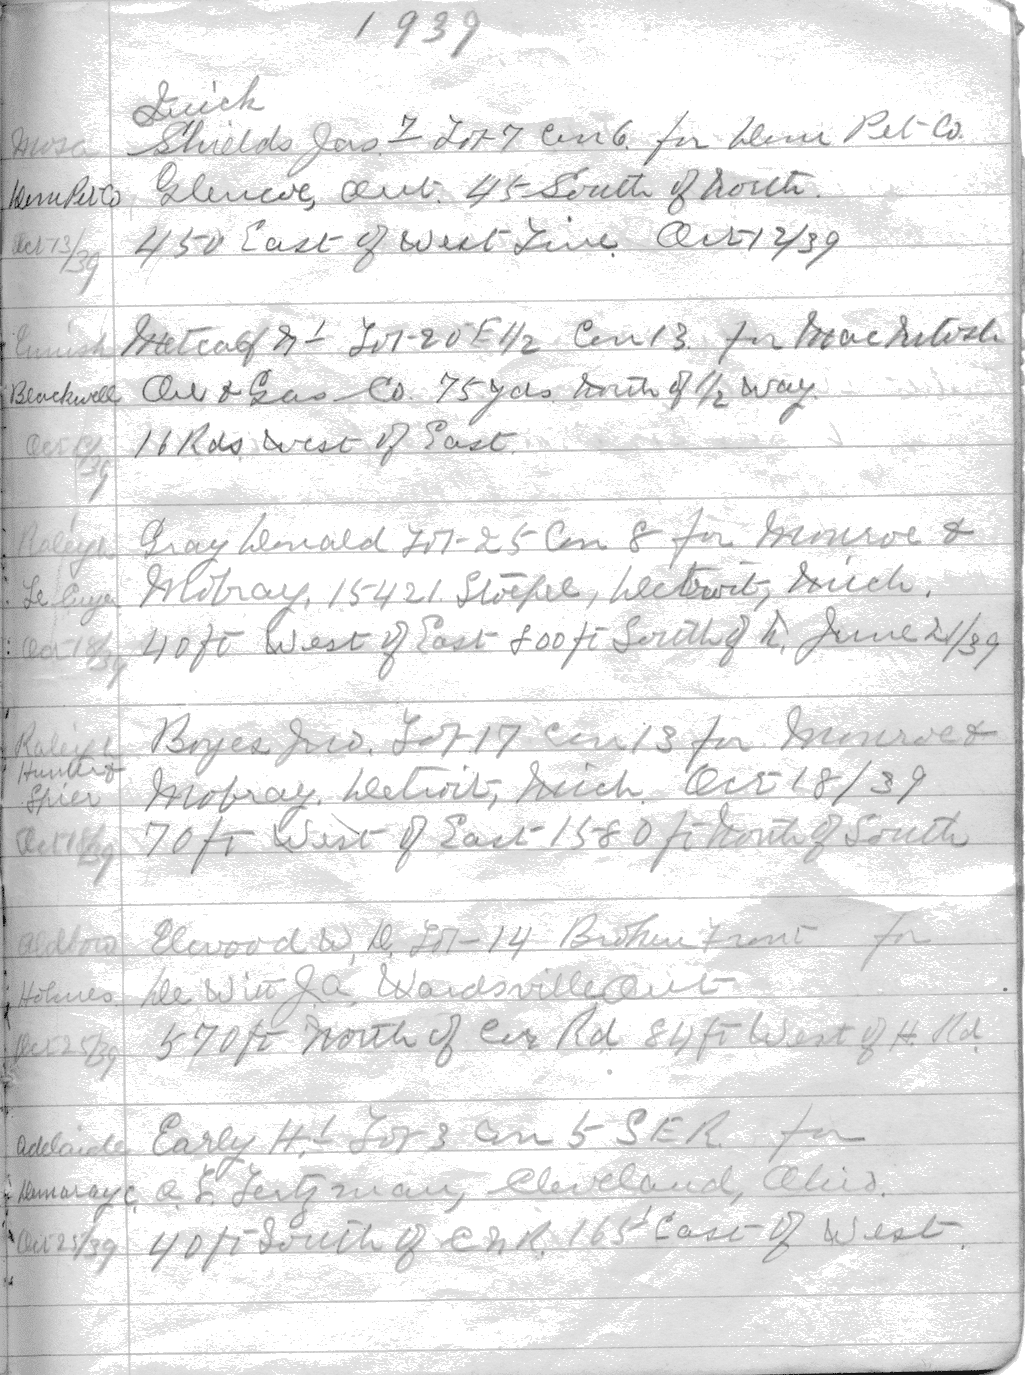 1939
Quick
Mosa Shields Jas. 7 Lot 7 Con 6. for Dom Pet Co.
Dom Pet Co Glencoe, Ont. 45 South of North.
Oct 13/39 450 East of West Line. Oct 12/39
Ennish Metcalf N 1 Lot 20 E 1/2 Con 13. for MacIntosh
Blackwell Oil & Gas Co. 75 yds North of 1/2 way.
Oct /39 16 Rds West of East.
Raleigh Gray Donald Lot 25 Con 8 for Monroe &
Mobray, 15421 Stoepel, Detroit, Mich.
Oct 18/39 40 ft West of East 800 ft South of N. June 21/39
Raleigh Boyes Jno. Lot 17 Con 13 for Monroe &
Hunter &
Spier Mobray. Detroit, Mich. Oct 18/39
Oct 18/39 70 ft West of East 1580 ft North of South
Aldboro Elwood W. D. Lot 14 Broken Front for
Holmes De Witt J A, Wardsville Ont
Oct 25/39 570 ft North of Con Rd 84 ft West of H. Rd.
Adelaide Early H. 1 Lot 3 Con 5 S E R. for
Cleveland, Ohio.
Oct 25/39 40 ft South of C N R. 165' East of West.